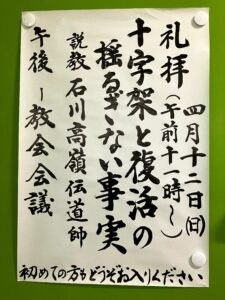 四月十二日(日)
礼拝(午前十一時〜)
十字架と復活の
揺るぎない事実
説教 石川高嶺伝道師
午後ー教会会議
初めての方もどうぞお入りください